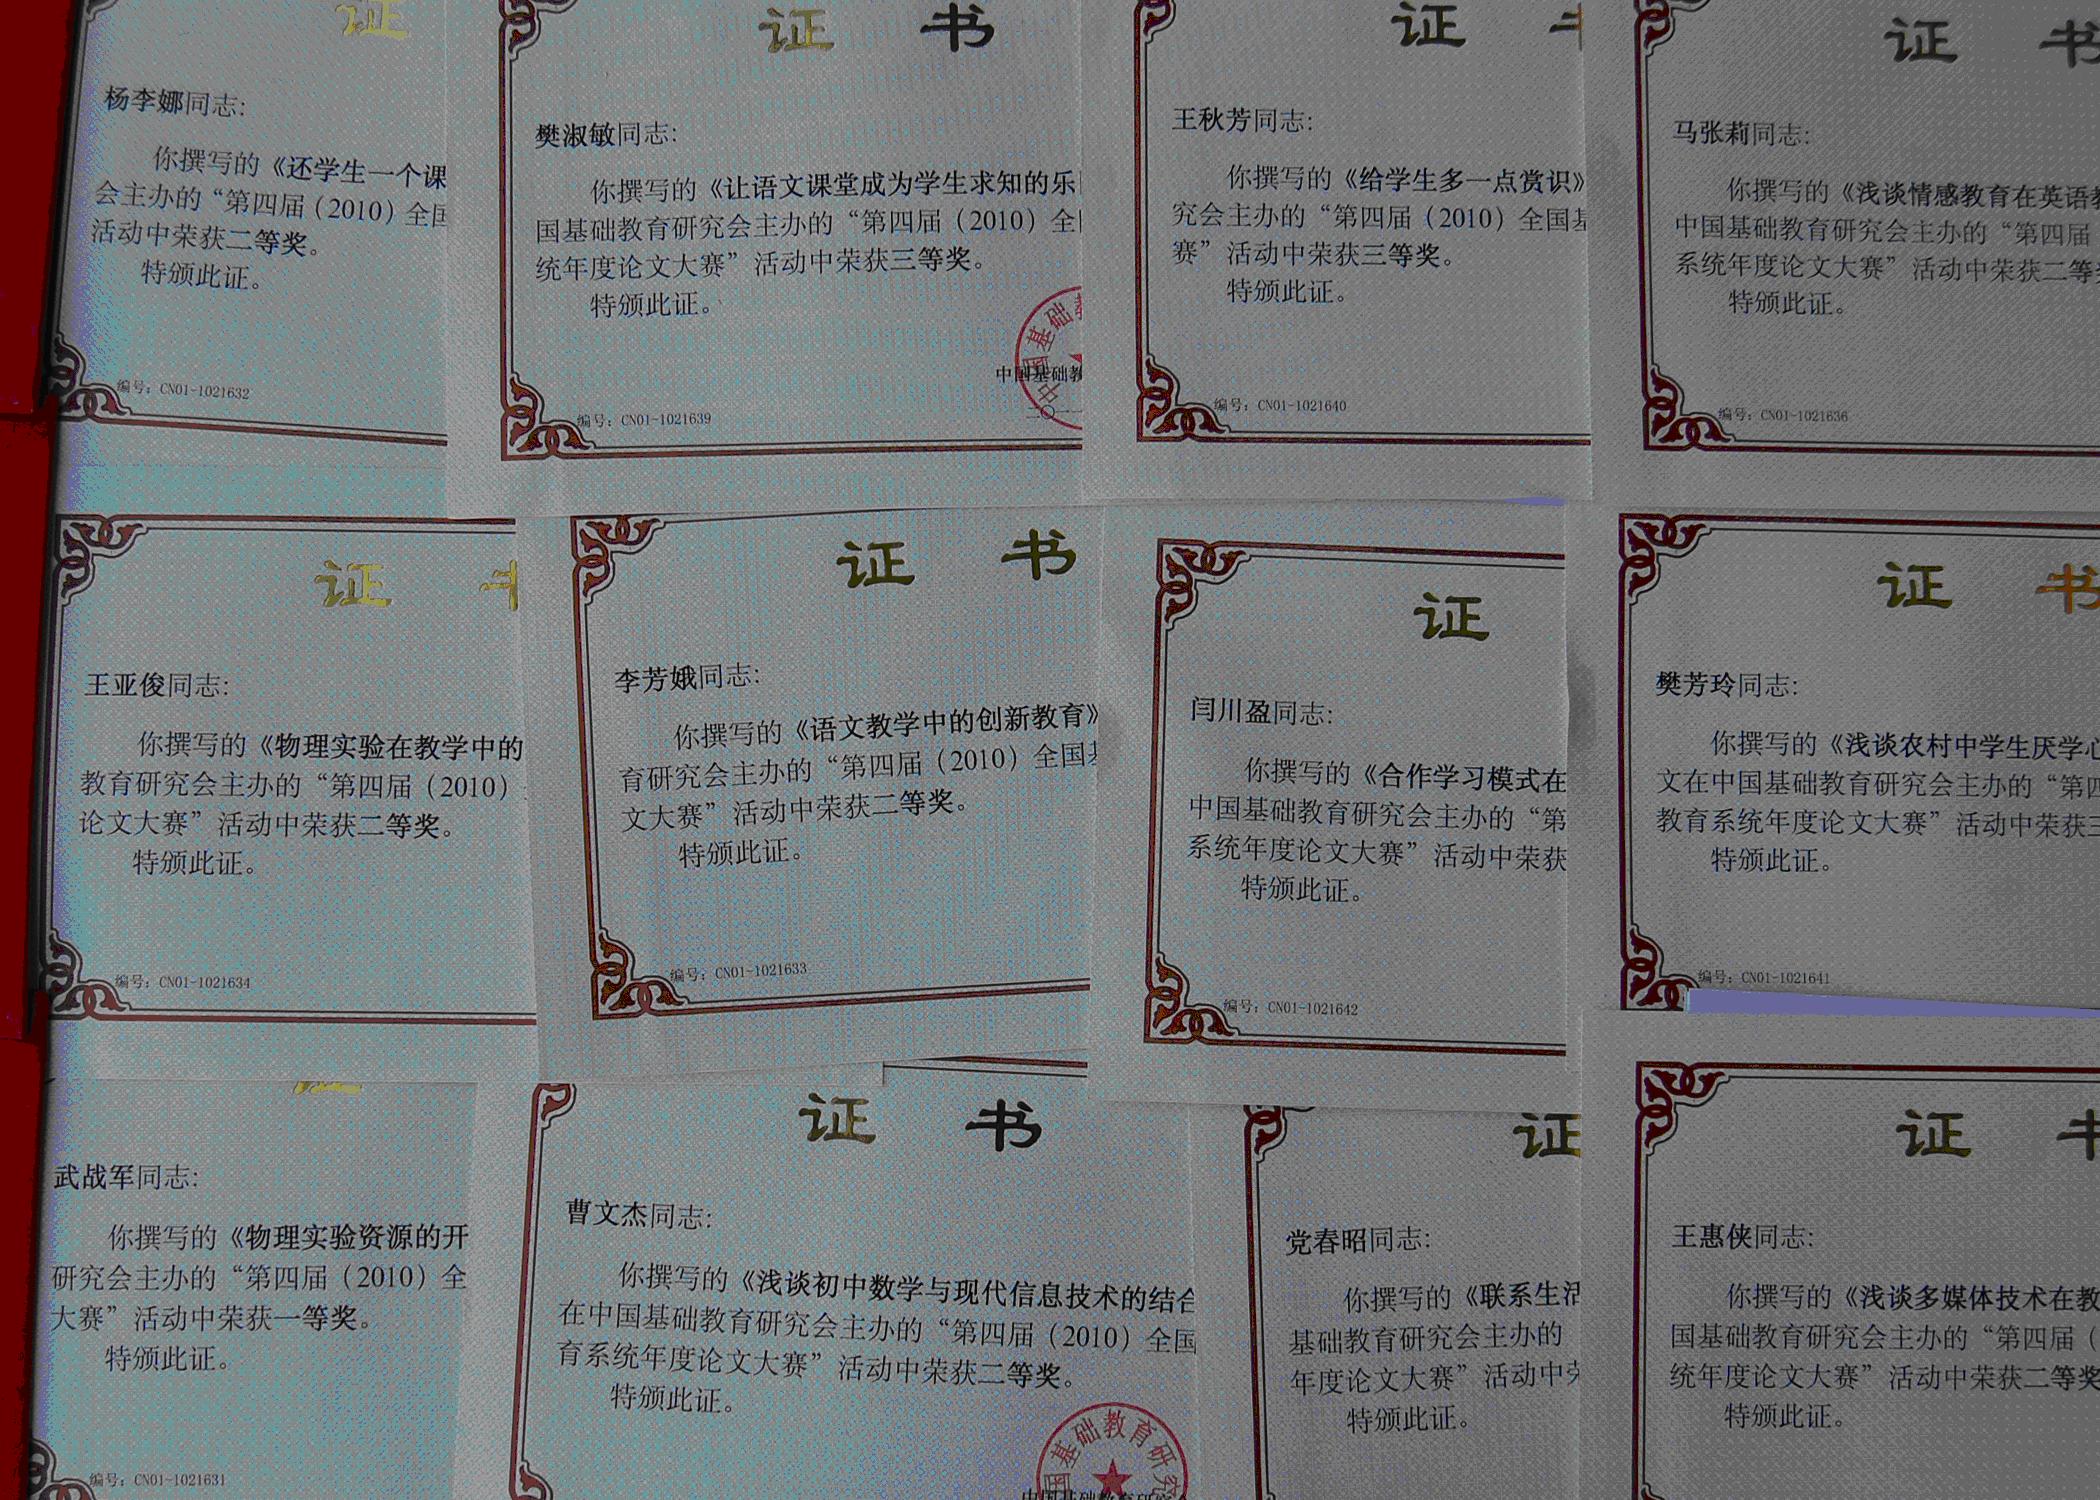 证
杨李娜同志:
你撰写的《还学生一个课
会主办的“第四届（2010）全国
活动中荣获二等奖。
特颁此证。
编号：CN01-1021632
证 书
樊淑敏同志:
你撰写的《让语文课堂成为学生求知的乐
国基础教育研究会主办的“第四届（2010）全
统年度论文大赛”活动中荣获三等奖。
特颁此证。
国基础教
中国基础教
编号：CN01-1021639
证
王秋芳同志:
你撰写的《给学生多一点赏识》
究会主办的“第四届（2010）全国基
赛”活动中荣获三等奖。
特颁此证。
编号：CN01-1021640
证 书
马张莉同志:
你撰写的《浅谈情感教育在英语教
中国基础教育研究会主办的“第四届
系统年度论文大赛”活动中荣获二等
特颁此证。
编号：CN01-1021636
证
王亚俊同志:
你撰写的《物理实验在教学中的
教育研究会主办的“第四届（2010）
论文大赛”活动中荣获二等奖。
特颁此证。
编号：CN01-1021634
证 书
李芳娥同志:
你撰写的《语文教学中的创新教育》
育研究会主办的“第四届（2010）全国
文大赛”活动中荣获二等奖。
特颁此证。
编号：CN01-1021633
证
闫川盈同志:
你撰写的《合作学习模式在
中国基础教育研究会主办的“第
系统年度论文大赛”活动中荣获
特颁此证。
编号：CN01-1021642
证 书
樊芳玲同志:
你撰写的《浅谈农村中学生厌学心
文在中国基础教育研究会主办的“第四
教育系统年度论文大赛”活动中荣获
特颁此证。
编号：CN01-1021641
武战军同志:
你撰写的《物理实验资源的开
研究会主办的“第四届（2010）全
大赛”活动中荣获一等奖。
特颁此证。
编号：CN01-1021631
证 书
曹文杰同志:
你撰写的《浅谈初中数学与现代信息技术的结合
在中国基础教育研究会主办的“第四届（2010）全国
育系统年度论文大赛”活动中荣获二等奖。
特颁此证。
国基础教育研究
中国基础教育研究会
证
党春昭同志:
你撰写的《联系生活
基础教育研究会主办的
年度论文大赛”活动中
特颁此证。
证
王惠侠同志:
你撰写的《浅谈多媒体技术在教
国基础教育研究会主办的“第四届（
统年度论文大赛”活动中荣获二等奖
特颁此证。